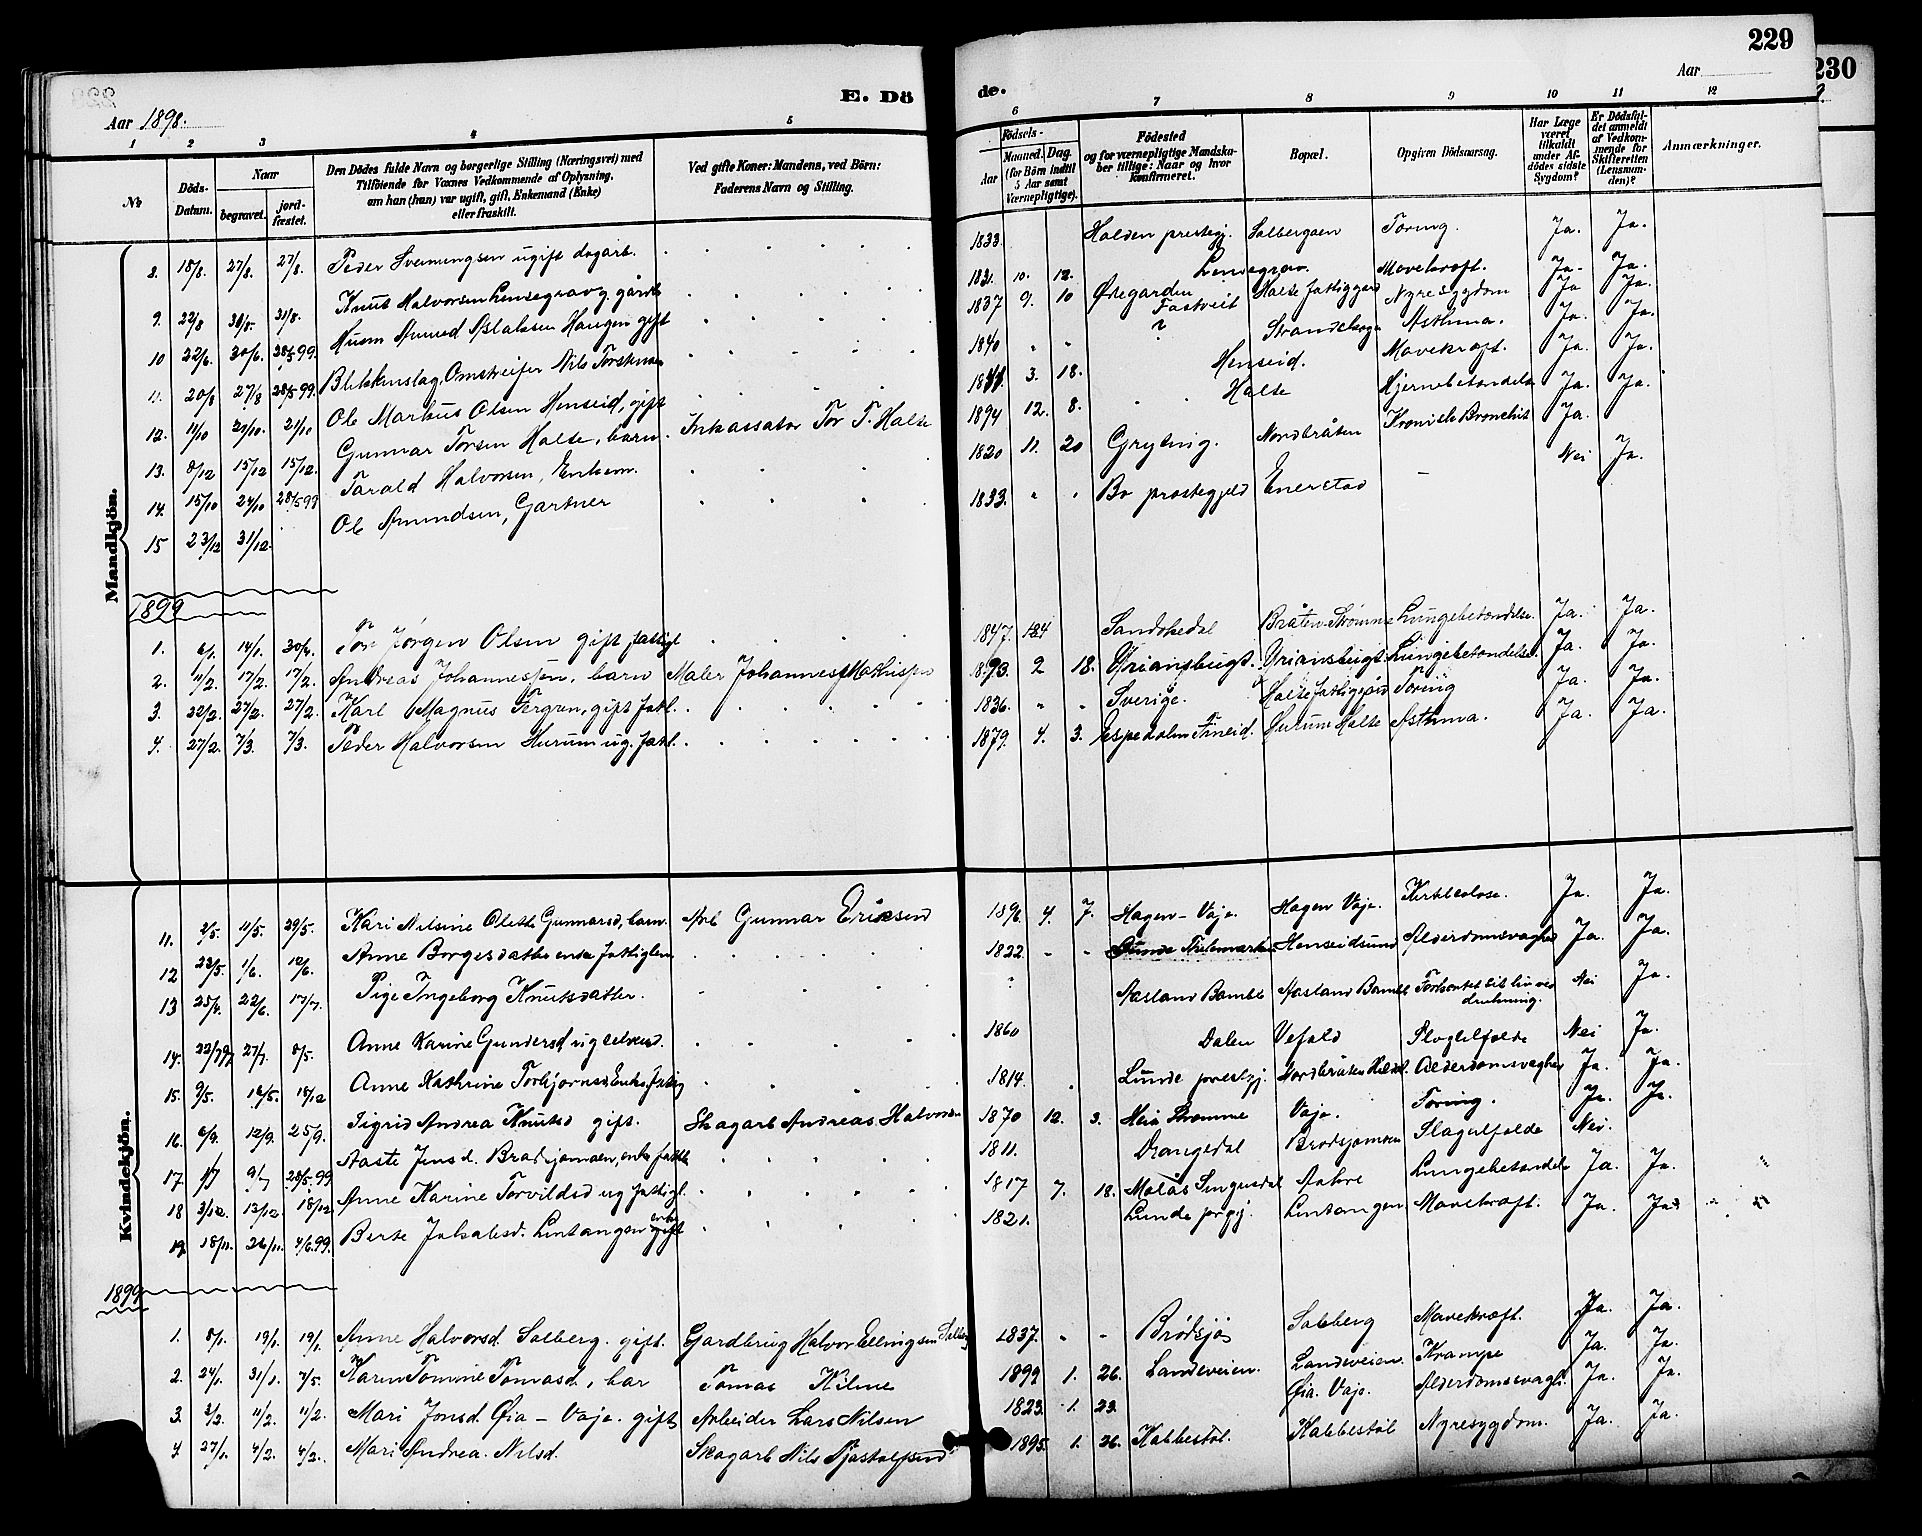 229
230
Aar
Aar 1898.
E. Dö de.
1 2 3 4 5 6 7 8 9 10 11 12
No
Döds-Datum.
Naar
begravet.
jord-fæstet.
Den Dödes fulde Navn og borgerlige Stilling (Næringsvei) med
Tilföiende for Voxnes Vedkommende af Oplysning,
om han (hun) var ugift, gift, Enkemand (Enke)
eller fraskilt.
Ved gifte Koner: Mandens, ved Börn:
Faderens Navn og Stilling.
Födsels-
Aar
Maaned. Dag.
(for Börn indtil
5 Aar samt
Værnepligtige).
Födested
og for værnepligtige Mandska-
ber tillige: Naar og hvor
konfirmeret.
Bopæl.
Opgiven Dödsaarsag.
Har Læge
været
tilkaldt
under Af-
dödes sidste
Sygdom?
Er Dödsfal-
det anmeldt
af Vedkom-
mende for
Skifteretten
(Lensman-
den)?
Anmærkninger.
Mandkjön.
8. 18/8. 27/8. 27/8. Peder Svenningsen ugift dagarb. 1833. Holden prestegj. Solbergaen Tæring. Ja. Ja.
9. 22/8 31/8. 31/8. Knut Halvorsen Lensegrav g. gårdb 1831. 10. 12. Lensegrav. Mavekræft. Ja. Ja.
10 22/6. 30/6. 28/5 99. Husm Amund Aslaksen Haugen gift 1837 9. 10 Ødegarden Fostveit Halse fattiggård Nyresygdom Ja Ja.
11. 20/8 27/8 28/5 99. Blikkenslag. Omstreifer Nils Torstensen 1840 ? Strandhage Asthma. Ja. Ja.
12. 11/10 21/10. 21/10 Ole Markus Olsen Henseid, gift 1844. 3. 18. Henseid. Mavekræft. Ja. Ja.
13. 8/12 15/12 15/12. Gunnar Torsen Halse, barn. Inkassator Tor T. Halse 1894 12. 8. Halse Hjernebetændelse Ja. Ja.
14. 15/10 24/10 28/5 99 Tarald Halvorsen, Enkem. 1820 11. 20 Gryting. Nordbråten Kronisk Bronchit Ja.
15 23/12 31/12. Ole Amundsen, Gartner 1833. Bø prestegjeld Enerstad – Nei Ja.
1899
1. 6/1. 14/1. 30/4. Tor Jørgen Olsen gift fattigl 1847. 12 4 Sandøkedal Bråten Strømme Lungebetændelse. Ja. Ja.
2. 11/2. 17/2. 17/2. Andreas Johannessen, barn Maler Johannes Mathisen 1893. 2 18. Øriansbugt. Øriansbugt. Lungebetændelse. Ja. Ja.
3. 22/2. 27/2. 27/2. Karl Magnus Tergren, gift fatl. 1836. Sverige. Halse fattiggård Tæring Ja. Ja.
4. 27/2. 7/3. 7/3. Peder Halvorsen Hurum ug. fatl. 1879. 4. 3. Espeholm Fineid. Hurum Halse Asthma. Ja. Ja.
Kvindekjön.
11. 2/5. 11/5. 29/5. Kari Nilsine Olette Gunnarsd, barn. Arb Gunnar Eriksen 1896. 4. 7. Hagen – Vaje. Hagen Vaje. Kirtleolose. Ja. Ja.
12 22/5. 1/6. 12/6. Anne Borgesdatter enke fattiglem 1822. Lunde Thelemarken Henseidsund Alderdomsvaghed Ja. Ja.
13 25/4. 22/6. 17/7. Pige Ingeborg Knutsdatter. Aasland Bamble Aasland Bamble Forkortet sit liv ved drukning. Nei Ja.
14. 22/7 97 27/7. 8/5. Anne Karine Gundersd ug selvend. 1860 Dalen Vefald Slagtilfælde Nei Ja.
15. 9/5. 16/5. 18/12 Anne Kathrine Torbjørnsd, Enke, fattig 1814. Lunde prestgj. Nordbråten Alderdomsvaghed Ja. Ja.
16. 6/9. 12/9. 25/9. Sigrid Andrea Knutsd gift. Skagarb Andreas Halvorsen 1870 12. 3. Heia Strømme Vaje. Tæring. Ja. Ja.
17. 1/7 9/7 28/5.99 Aaste Jensd. Brødsjømoen, enke fattl 1811. Drangedal Brødsjømoen Slagtilfælde Nei.
18 3/12. 13/12. 18/12 Anne Karine Torvildsd ug fattigl. 1817 7. 18. Molås Aahre Lungebetændelse Ja. Ja.
19. 18/11. 26/11. 4/6.99. Berte Jakobsd. Lintangen enke gift 1821. Lunde prgj. Lintangen Mavekræft. Ja. Ja.
1899
1. 8/1. 19/1. 19/1. Anne Halvorsd. Solberg. gift. Gardbrug Halvor Ellingsen Solberg 1837. Brødsjø Solberg Mavekræft. Ja. Ja.
2. 24/1. 31/1. 7/5. Karen Tomine Tomasd, bar Tomas Kilene 1899 1. 26. Landeveien. Landeveien. Krampe Ja. Ja.
3. 3/2. 11/2. 11/2. Mari Jonsd. Øia – Vaje. gift Arbeider Lars Nilsen 1823. 1. 23. Øia. Vaje. Alderdomsvagh. Ja. Ja.
4 27/1. 4/2. 4/2. Mari Andrea. Nilsd. Skagarb Nils Njæstolfsen 1895. 1. 26. Kabbestøl. Kabbestøl Nyresygdom. Ja. Ja.